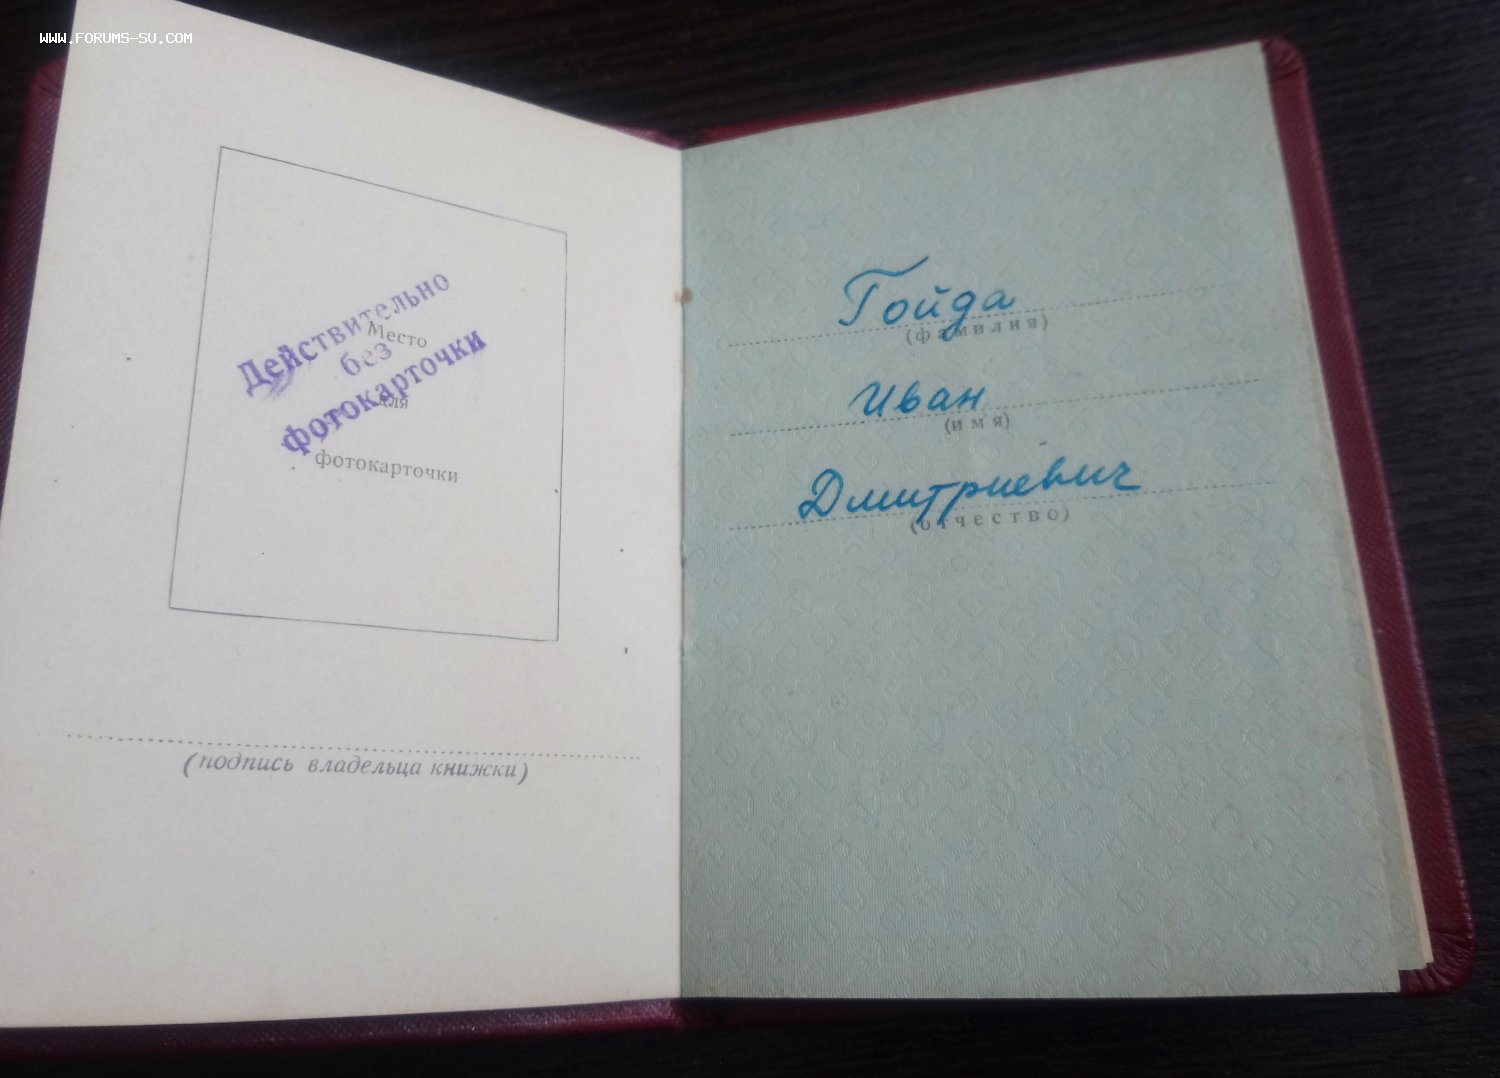 WWW.FORUMS-SU.COM
Действительно
без
фотокарточки
Место
для
фотокарточки
(подпись владельца книжки)
Гойда
(фамилия)
Иван
(имя)
Дмитриевич
(отчество)